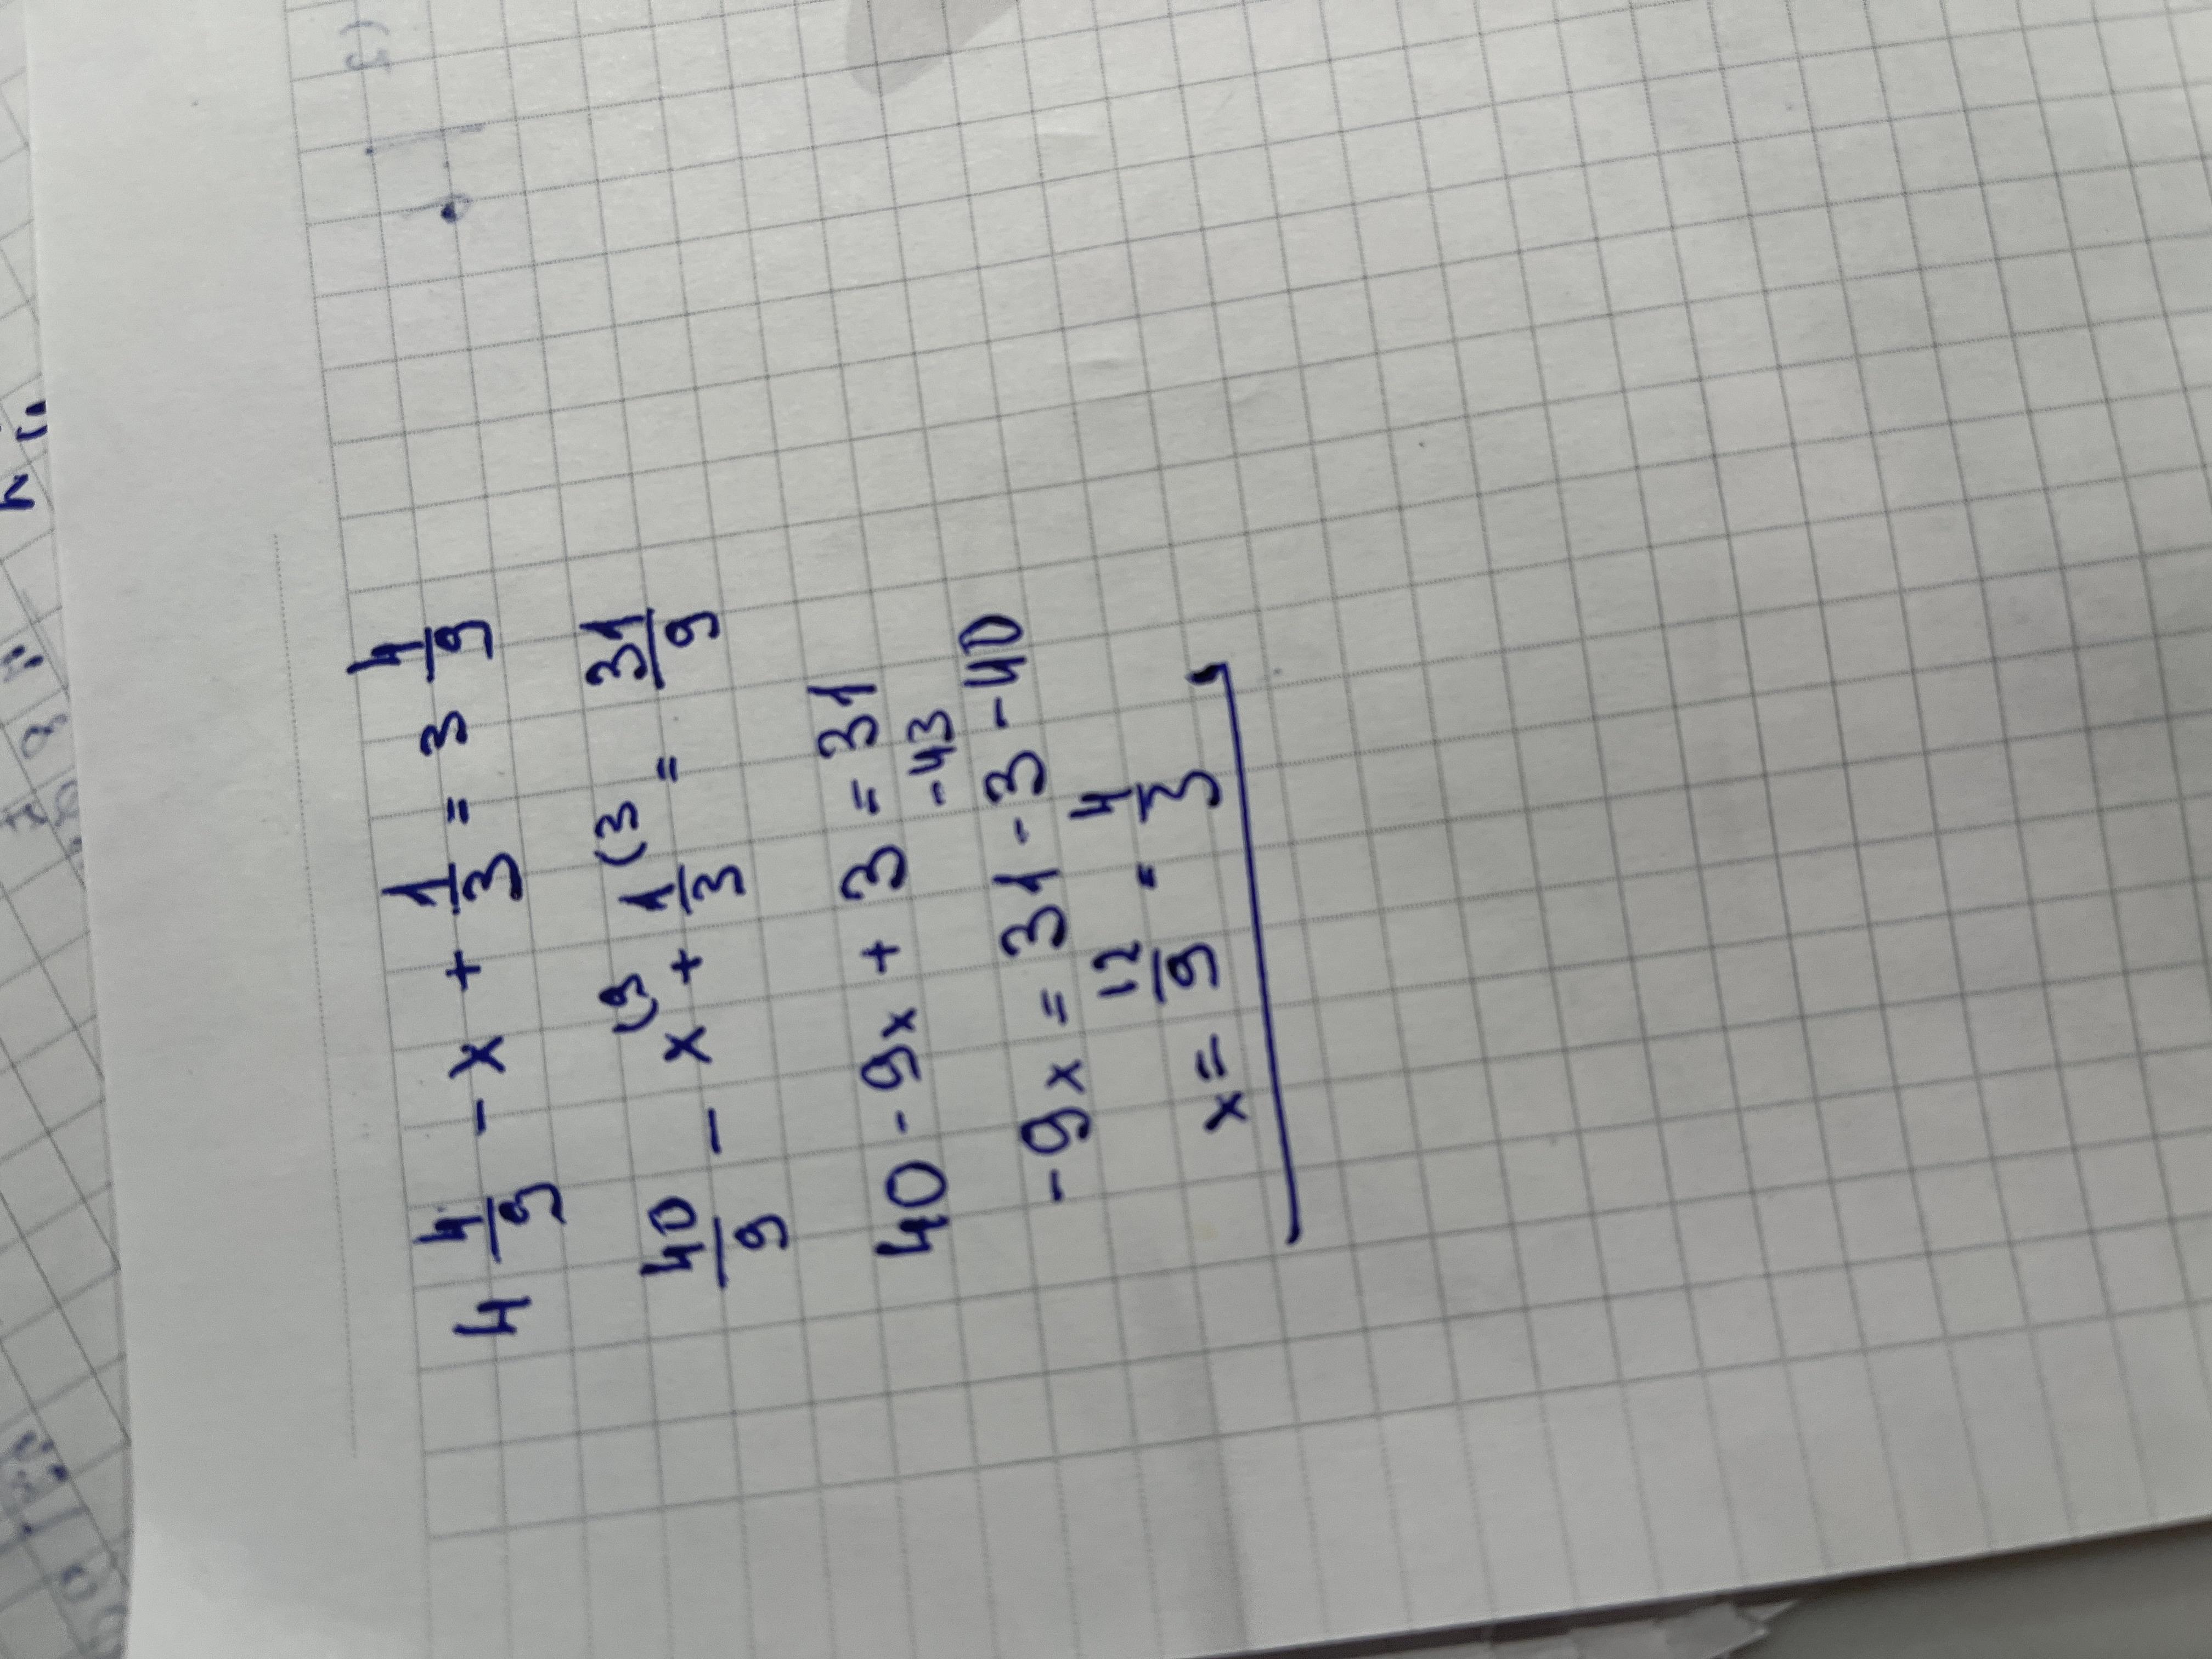 4 4/9 - x + 1/3 = 3 4/9
40/9 - x (9 + 1/3 (3 = 31/9
40 - 9x + 3 = 31
-43
-9x = 31 - 3 - 40
x = 12/9 = 4/3